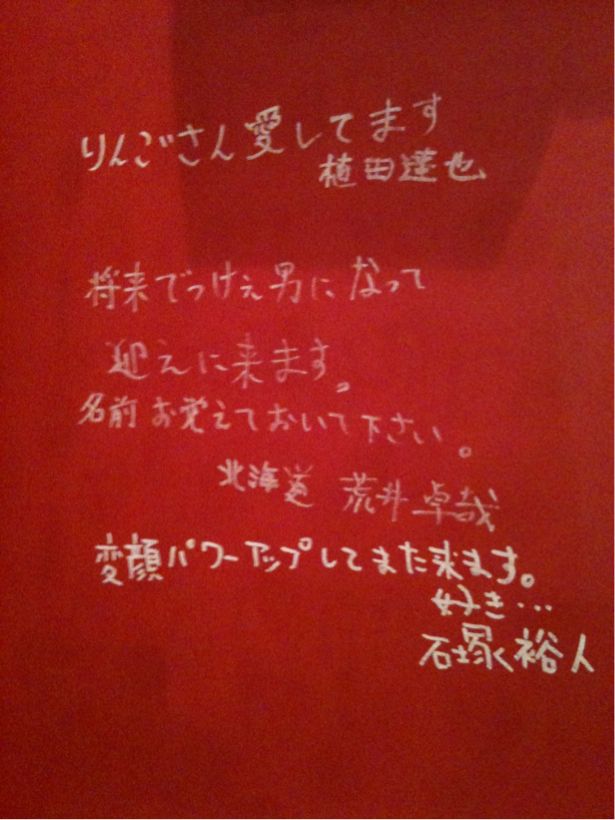 りんごさん愛してます
植田達也
将来でっけぇ男になって
迎えに来ます。
名前お覚えておいて下さい。
北海道 荒井卓哉
変顔パワーアップしてまた来ます。
好き…
石塚裕人